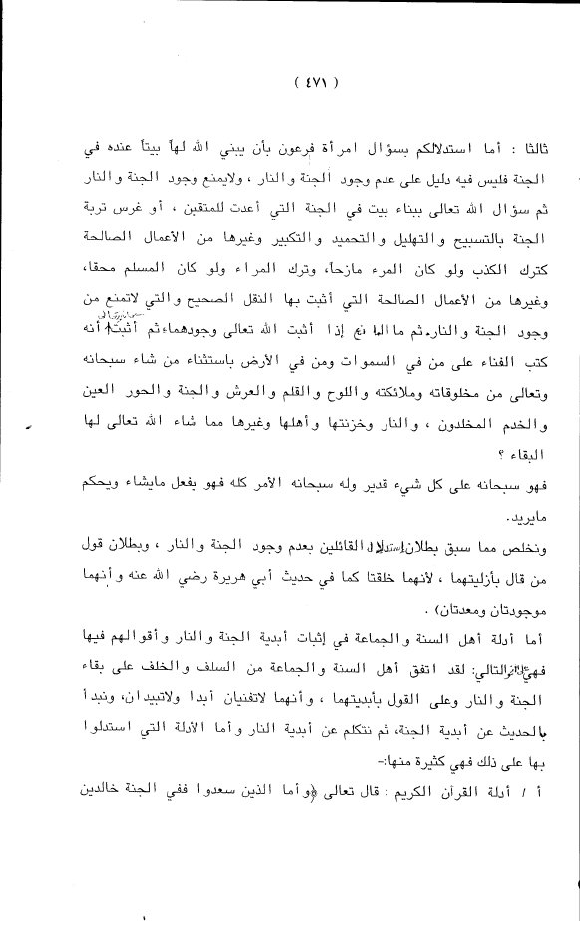 ( ٤٧١ )
ثالثا : أما استدلالكم بسؤال امرأة فرعون بأن يبني الله لهاً بيتاً عنده في
الجنة فليس فيه دليل على عدم وجود الجنة والنار ، ولايمنع وجود الجنة والنار
ثم سؤال الله تعالى ببناء بيت في الجنة التي أعدت للمتقين ، أو غرس تربة
الجنة بالتسبيح والتهليل والتحميد والتكبير وغيرها من الأعمال الصالحة
كترك الكذب ولو كان المرء مازحا، وترك المراء ولو كان المسلم محقا،
وغيرها من الأعمال الصالحة التي أثبت بها النقل الصحيح والتي لاتمنع من
وجود الجنة والنار. ثم ما المانع إذا أثبت الله تعالى وجودهما، ثم أثبت سبحانه وتعالى أنه
كتب الفناء على من في السموات ومن في الأرض باستثناء من شاء سبحانه
وتعالى من مخلوقاته وملائكته واللوح والقلم والعرش والجنة والحور العين
والخدم المخلدون ، والنار وخزنتها وأهلها وغيرها مما شاء الله تعالى لها
البقاء ؟
فهو سبحانه على كل شيء قدير وله سبحانه الأمر كله فهو يفعل مايشاء ويحكم
مايريد.
ونخلص مما سبق بطلان إستدلال القائلين بعدم وجود الجنة والنار ، وبطلان قول
من قال بأزليتهما ، لأنهما خلقتا كما في حديث أبي هريرة رضي الله عنه وأنهما
موجودتان ومعدتان) .
أما أدلة أهل السنة والجماعة في إثبات أبدية الجنة والنار وأقوالهم فيها
التالي: لقد اتفق أهل السنة والجماعة من السلف والخلف على بقاء
الجنة والنار وعلى القول بأبديتهما ، وأنهما لاتفنيان أبدا ولاتبيدان، ونبدأ
بالحديث عن أبدية الجنة، ثم نتكلم عن أبدية النار وأما الأدلة التي استدلوا
بها على ذلك فهي كثيرة منها:-
أ / أدلة القرآن الكريم : قال تعالى ﴿وأما الذين سعدوا ففي الجنة خالدين